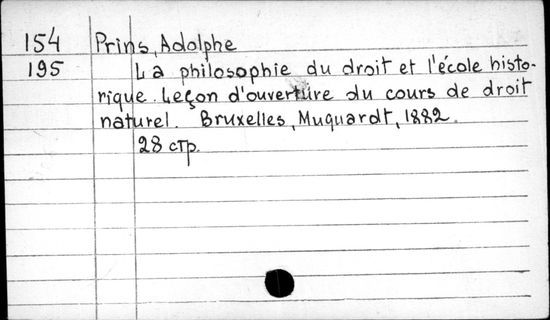 154 Prins, Adolphe
195 La philosophie du droit et l'école histo-
rique. Leçon d'ouverture du cours de droit
naturel. Bruxelles, Muquardt, 1882.
28 стр.